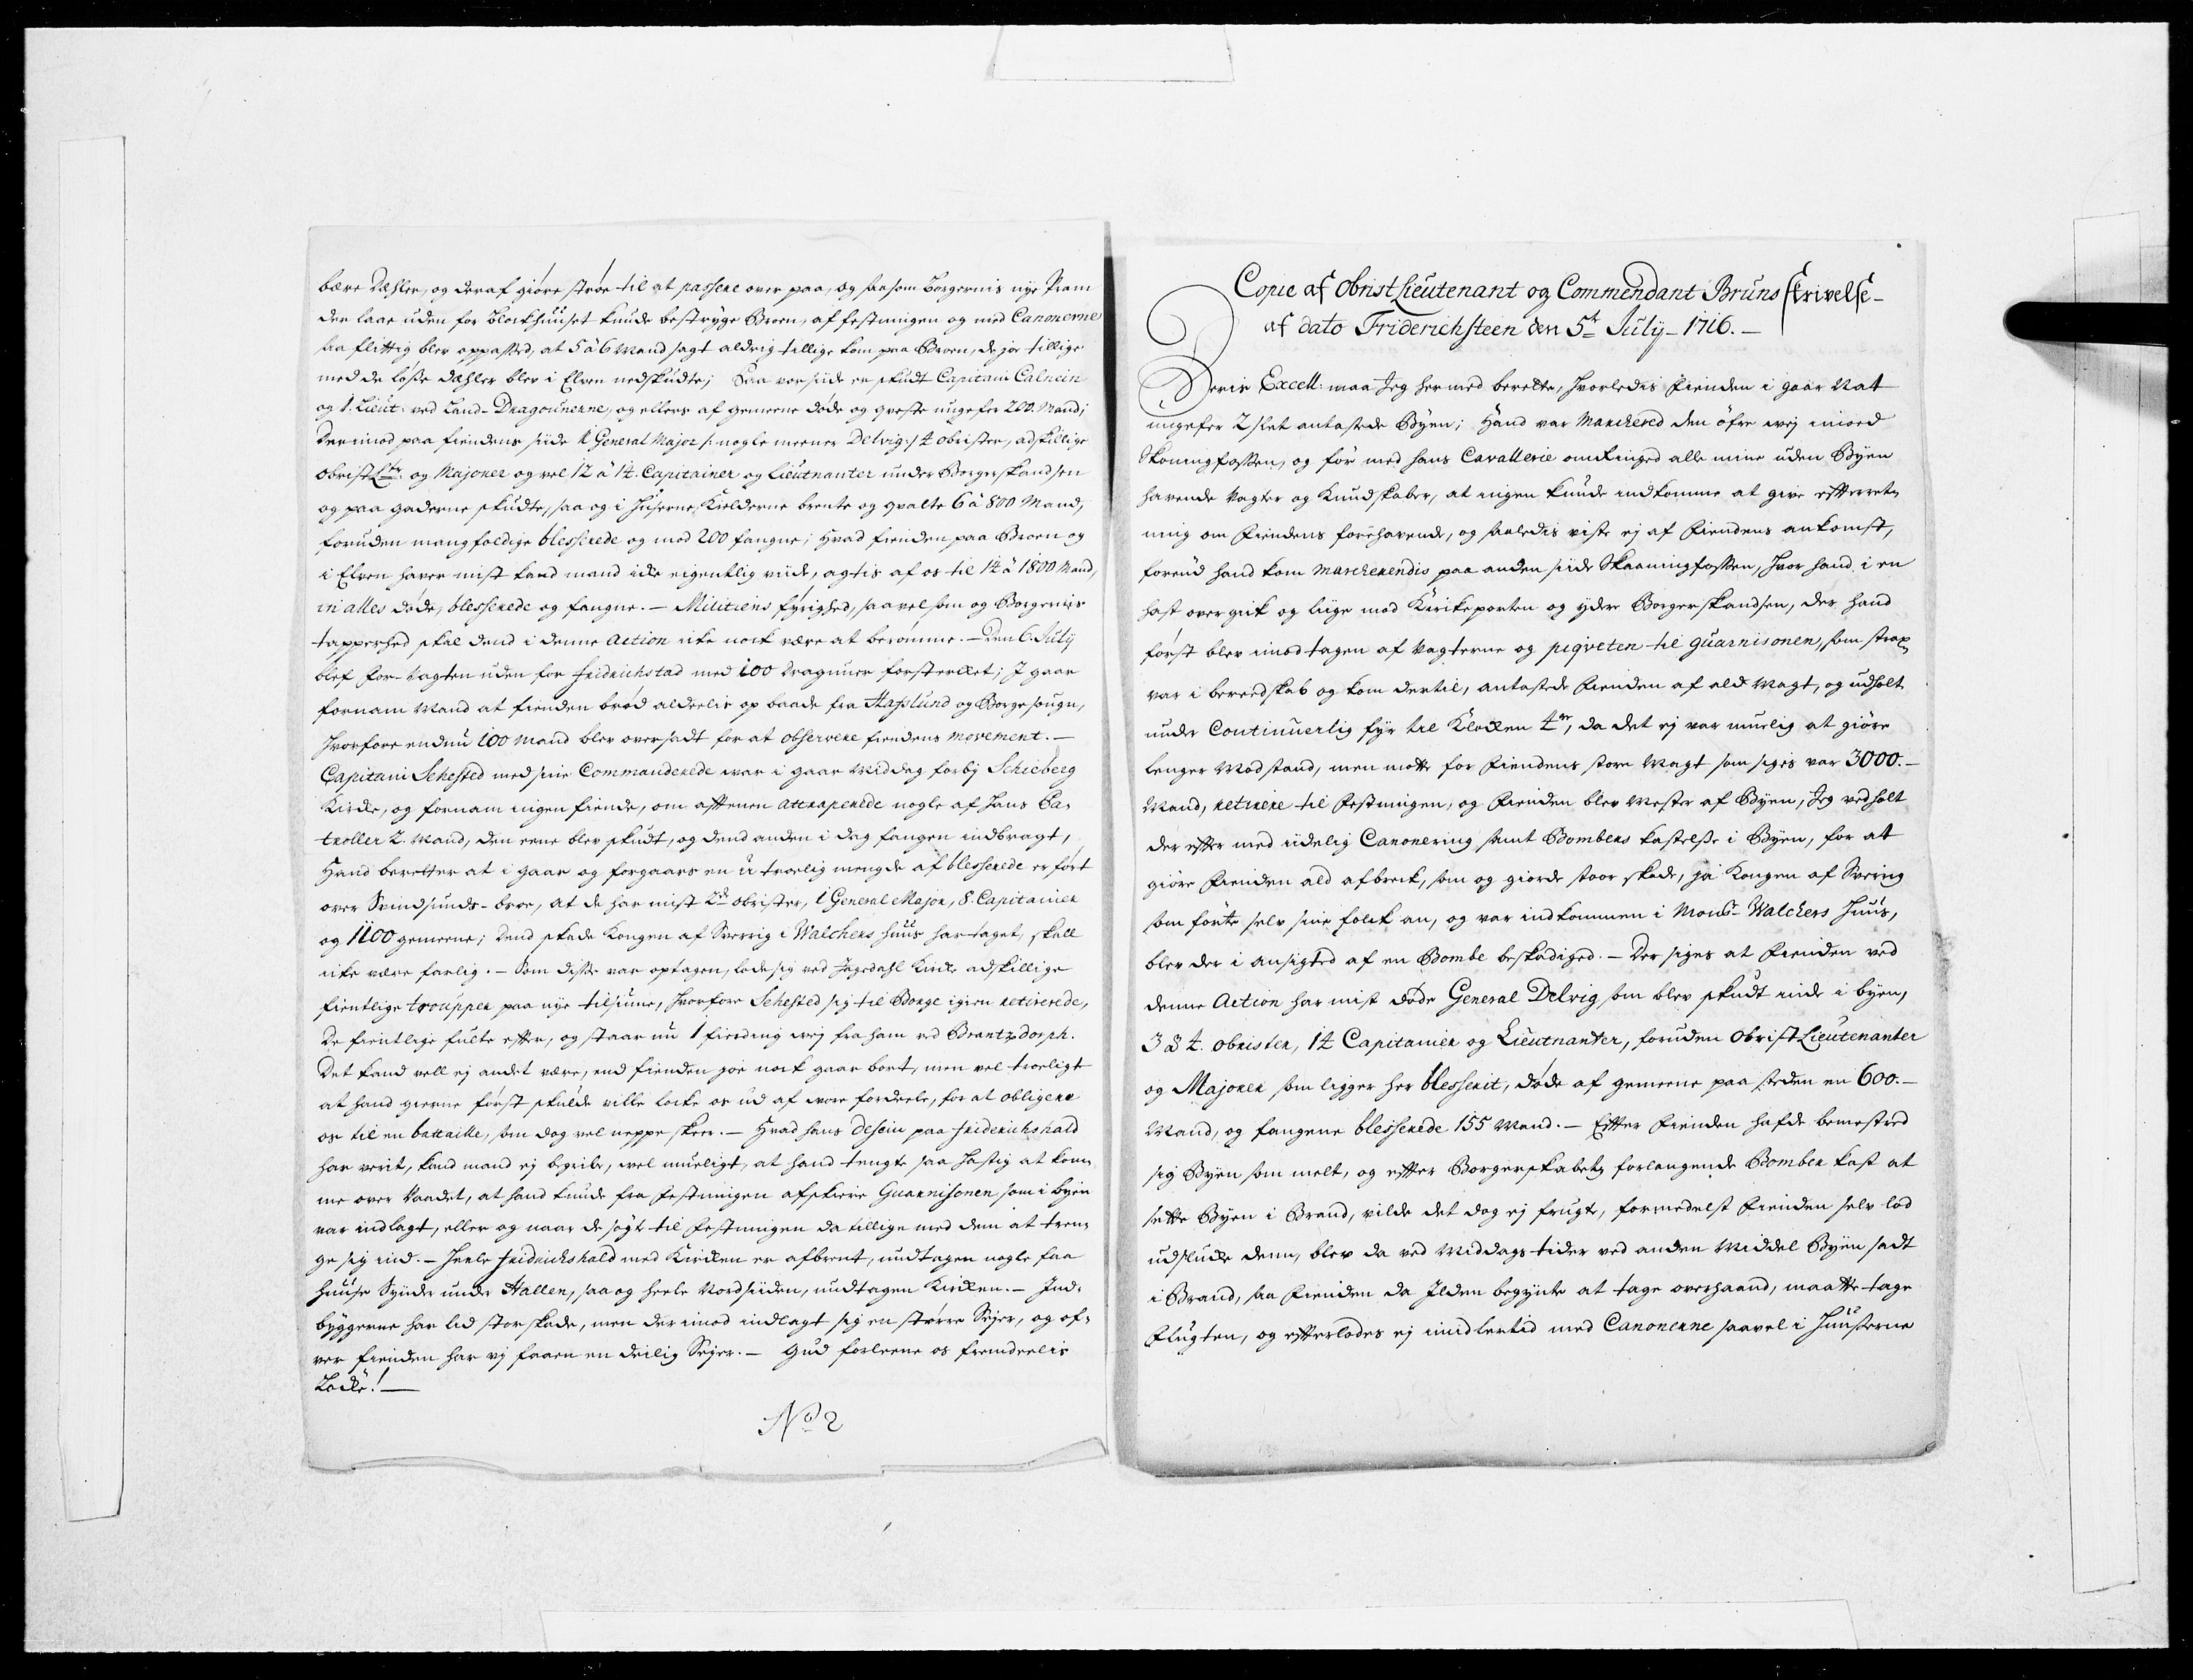 bære Dæhler, og deraf giøre strøe til at passere over paa, og saasom Borgernis nye Pram
der laae uden for Blockhuuset kunde bestryge Broen, af festningen og med Canonerne
saa flittig blev oppasset, at 5 à 6 Mand sagt aldrig tillige kom paa Broen, de jo tillige
med de løse dæhler blev i Elven nedskudte; Paa vor siide er skudt Capitain Calnein
og 1. Lieut: ved Land-Dragounerne, og ellers af gemeene døde og qveste ungefer 200. Mand;
Derimod paa fiendens siide 1 General Major /: nogle meener Delvig :/ 4 obrister, adskillige
Obrist Ltr: og Majorer og vel 12 à 14. Capitainer og Lieutnanter under Borgerskandsen
og paa gaderne skudte, saa og i Huserne, Kielderne brente og qvalte 6 à 800 Mand,
foruden mangfoldige blesserede og mod 200 fangne; Hvad fienden paa Broen og
i Elven haver mist kand mand icke eigentlig viide, agtis af os til 14 à 1800 Mand,
in alles døde, blesserede og fangne. — Militiens fyrighed, saavel som og Borgernis
tapperhed skal dend i denne Action icke nock være at berømme. — Den 6. July
blef for-Vagten uden for Fridrichstad med 100 Draguner forsterket; I gaar
fornam Mand at fienden brød aldeelis op baade fra Hafslund og Borge sougn,
Hvorfore endnu 100 Mand blev oversadt for at observere fiendens movement. —
Capitain Sehested med sine Commanderede var i gaar Middag forby Schieberg
Kircke, og fornam ingen fiende, om afftenen attraperede nogle af Hans Pa-
troller 2. Mand, den eene blev skudt, og dend anden i dag fangen indbragt,
Hand beretter at i gaar og forgaars en utroelig mengde af blesserede er ført
over Svindsunds-broe, at de har mist 2de obrister, 1 General Major, 8. Capitainer
og 1100 gemeene; Dend skade Kongen af Sverrig i Walchers huus har taget, skall
icke være farlig. — Som disse var optagen, lode sig ved Ingedahl Kircke adskillige
fientlige troupper paa nye tilsiune, Hvorfore Sehested sig til Borge igien retirerede,
De fientlige fulte effter, og staar nu 1 fierding vej fra ham ved Brantzdorph.
Det kand vell ej andet være, end fienden joe nock gaar bort, men vel troeligt
at hand gierne først skulde ville locke os ud af vore fordeele, for at obligere
os til en battaille, som dog vel neppe skeer. — Hvad hans desein paa Friderichshald
har verit, kand mand ej begribe, vel mueligt, at hand tengte saa hastig at kom-
me over Vaadet, at hand kunde fra festningen afskiære Guarnisonen som i byen
var indlagt, eller og naar de søgt til festningen da tillige med dem at tren-
ge sig ind. — Heele Fridrichshald med Kircken er afbrent, undtagen nogle faa
Huuse Synder under Hallen, saa og heele Nordsiiden, undtagen Kircken. — Ind-
byggerne har lid stor skade, men derimod indlagt sig en større Sejer, og of-
ver fienden har vj faaen en deilig Sejer. — Gud forleene os fremdeelis
Løcke! —
No 2
Copie af Obrist Lieutenant og Commendant Bruns skrivelse
af dato Friderichsteen den 5t July 1716. —
Deris Excell: maa Jeg hermed berette, hvorledis fienden i gaar Nat
ungefer 2 slet antastede Byen; Hand var Marchered den øfre vej imoed
Skoningfossen, og før med hans Cavallerie omringed alle mine uden Byen
havende Vagter og Kundskaber, at ingen kunde indkomme at give effterret-
ning om fiendens forehavende, og saaledis viste ej af fiendens ankomst,
førend hand kom marcherendis paa anden siide Skaaningfossen, hvor hand i en
hast overgick og liige mod Kirkeporten og ydere Borgerskandsen, der hand
først blev imod tagen af Vagterne og piqveten til guarnisonen, som strax
var i bereedskab og kom dertil, antastede fienden af ald Magt, og udholt
under Continuerlig fyr til Klocken 4re, da det ej var muelig at giøre
lenger Modstand, men motte for fiendens store Magt som siges var 3000. —
Mand, retirere til festningen, og fienden blev Mester af Byen, Jeg vedholt
der effter med iidelig Canonering samt Bombers kastelse i Byen, for at
giøre fienden ald afbreck, som og giorde stoor skade, ja Kongen af Sverrig
som førte selv sine folck an, og var indkommen i Monsr Walchers Huus,
blev der i ansigted af en Bombe beskadiged. — Der siges at fienden ved
denne Action har mist døde General Delvig som blev skudt inde i byen,
3 à 4. obrister, 14 Capitainer og Lieutnanter, foruden Obrist Lieutenanter
og Majorer som ligger her blesserit, døde af gemeene paa steden en 600. —
Mand, og fangene blesserede 155 Mand. — Effter fienden hafde bemestred
sig Byen som melt, og effter Borgerskabets forlangende Bomber kast at
sette Byen i Brand, vilde det dog ej frugte, formedelst fienden selv lod
udslucke dem, blev da ved Middags tider ved anden Middel Byen sadt
i Brand, saa fienden da Ilden begynte at tage overhaand, maatte tage
Flugten, og effterlodes ej imidlertid med Canonerne saavel i Huuserne